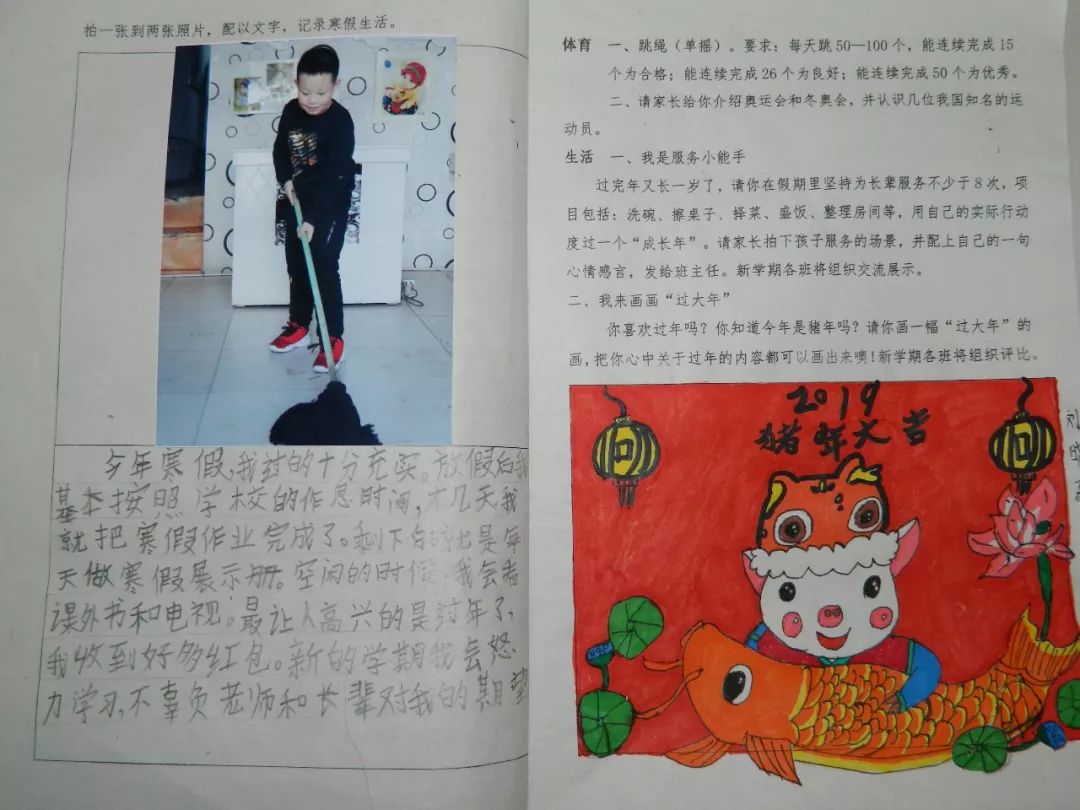 拍一张到两张照片，配以文字，记录寒假生活。
今年寒假，我过的十分充实。放假后我
基本按照学校的作息时间，才几天我
就把寒假作业完成了。剩下的就是每
天做寒假展示册。空闲的时候，我会看
课外书和电视。最让人高兴的是过年了，
我收到好多红包。新的学期我会怒
力学习，不辜负老师和长辈对我的期望
体育 一、跳绳（单摇）。要求：每天跳50—100个，能连续完成15
个为合格；能连续完成26个为良好；能连续完成50个为优秀。
二、请家长给你介绍奥运会和冬奥会，并认识几位我国知名的运
动员。
生活 一、我是服务小能手
过完年又长一岁了，请你在假期里坚持为长辈服务不少于8次，项
目包括：洗碗、擦桌子、择菜、盛饭、整理房间等，用自己的实际行动
度过一个“成长年”。请家长拍下孩子服务的场景，并配上自己的一句
心情感言，发给班主任。新学期各班将组织交流展示。
二、我来画画“过大年”
你喜欢过年吗？你知道今年是猪年吗？请你画一幅“过大年”的
画，把你心中关于过年的内容都可以画出来噢！新学期各班将组织评比。
2019
猪年大吉